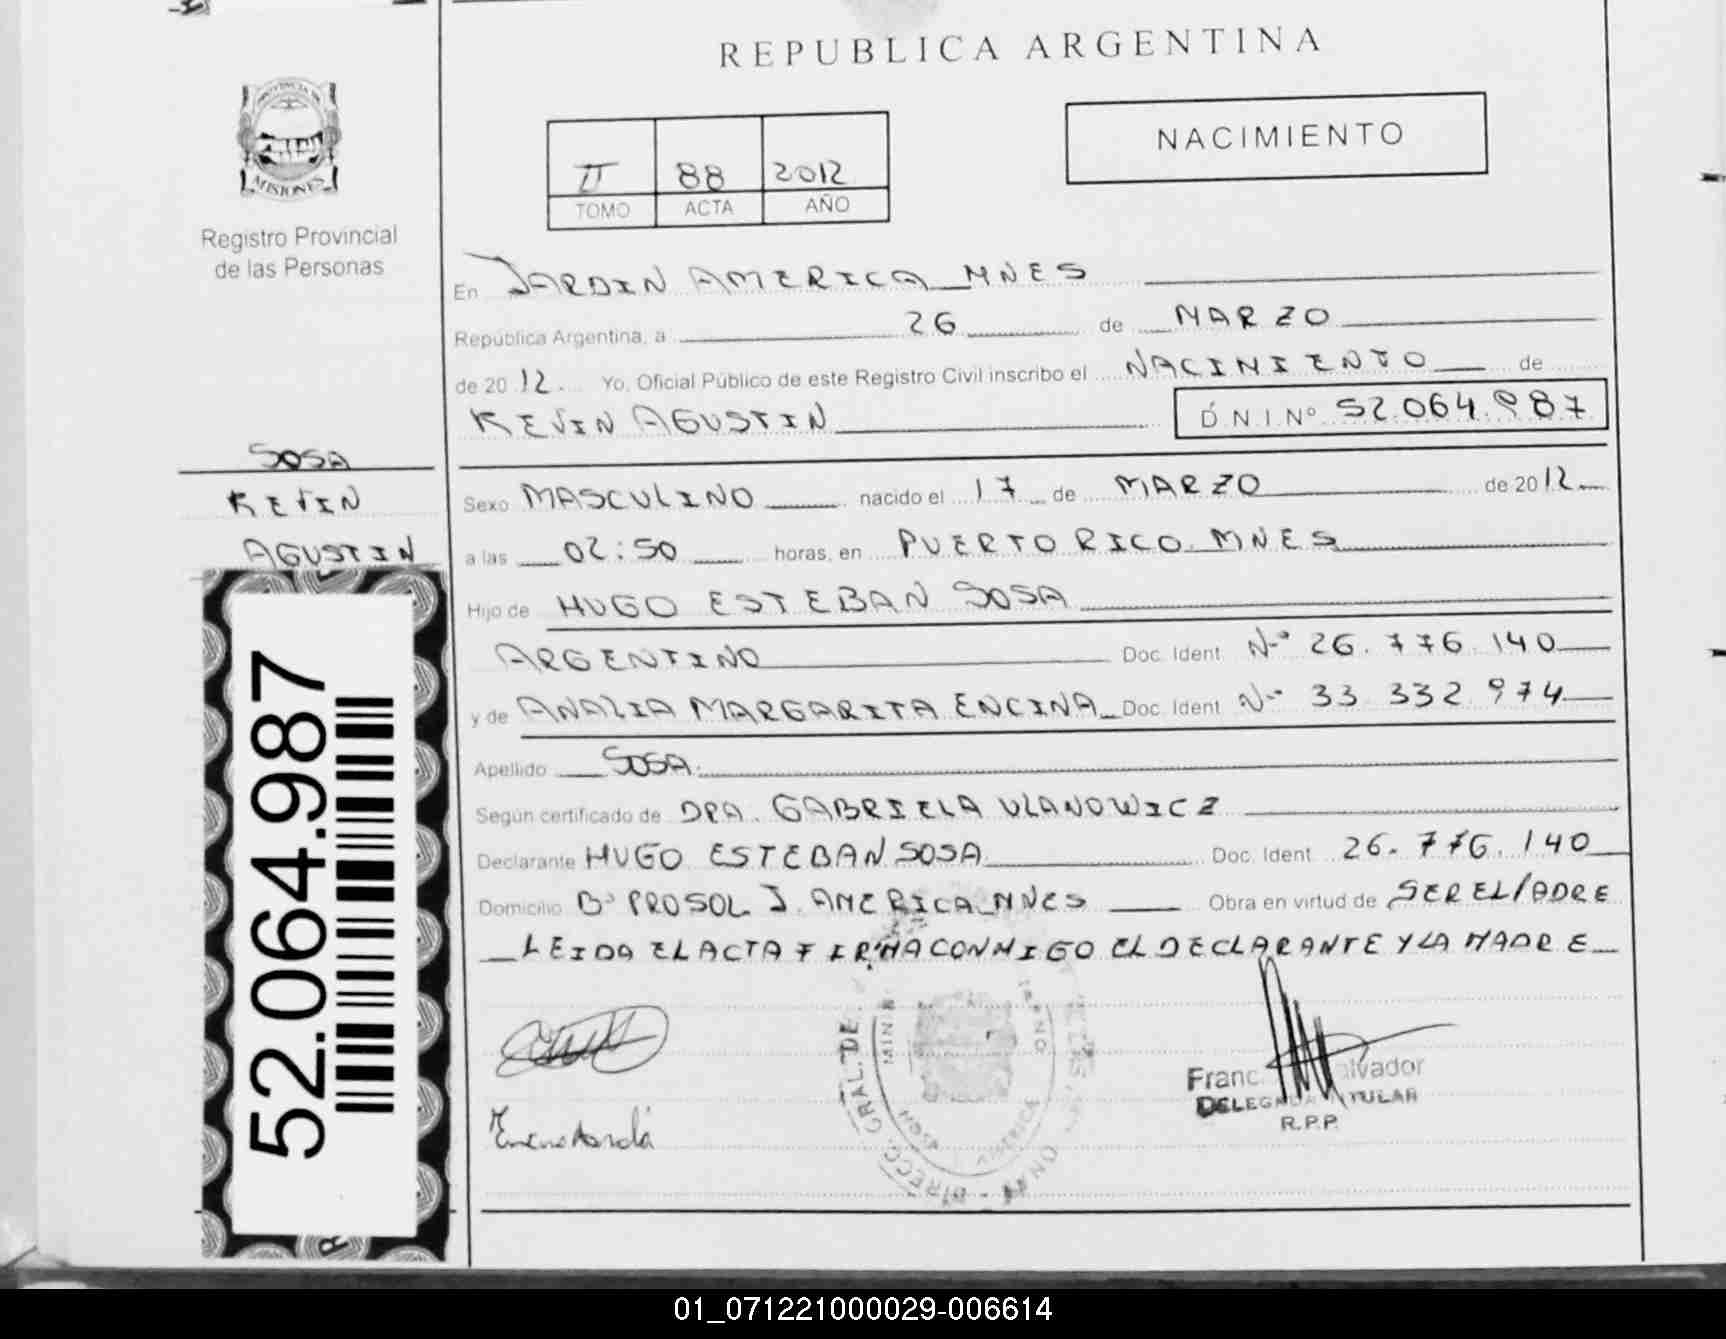 REPUBLICA ARGENTINA
NACIMIENTO
II 88 2012
TOMO ACTA AÑO
PROVINCIA DE
MISIONES
Registro Provincial
de las Personas
En JARDIN AMERICA MNES
República Argentina, a 26 de MARZO
de 2012. Yo, Oficial Público de este Registro Civil inscribo el NACIMIENTO de
KEVIN AGUSTIN D.N.I. Nº 52.064.987
SOSA
KEVIN
AGUSTIN
Sexo MASCULINO nacido el 17 de MARZO de 2012
a las 02:50 horas, en PUERTO RICO MNES
Hijo de HUGO ESTEBAN SOSA
ARGENTINO Doc. Ident Nº 26.776.140
y de ANALIA MARGARITA ENCINA Doc. Ident Nº 33 332 974
Apellido SOSA
Según certificado de DRA. GABRIELA ULANOWICZ
Declarante HUGO ESTEBAN SOSA Doc. Ident 26.776.140
Domicilio Bº PROSOL J. AMERICA MNES Obra en virtud de SER EL PADRE
LEIDA EL ACTA FIRMA CONMIGO EL DECLARANTE Y LA MADRE
52.064.987
DIRECC. GRAL. DE
Franc alvador
DELEGAD TITULAR
R.P.P.
01_071221000029-006614